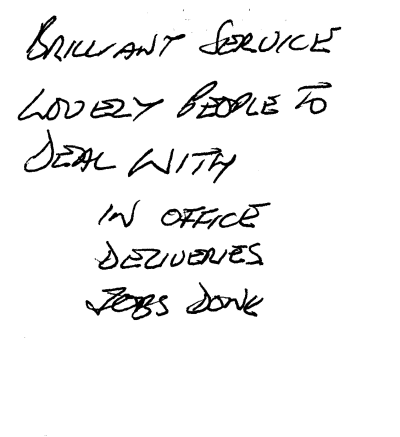 BRILLIANT SERVICE
LOVELY PEOPLE TO
DEAL WITH
IN OFFICE
DELIVERIES
JOBS DONE